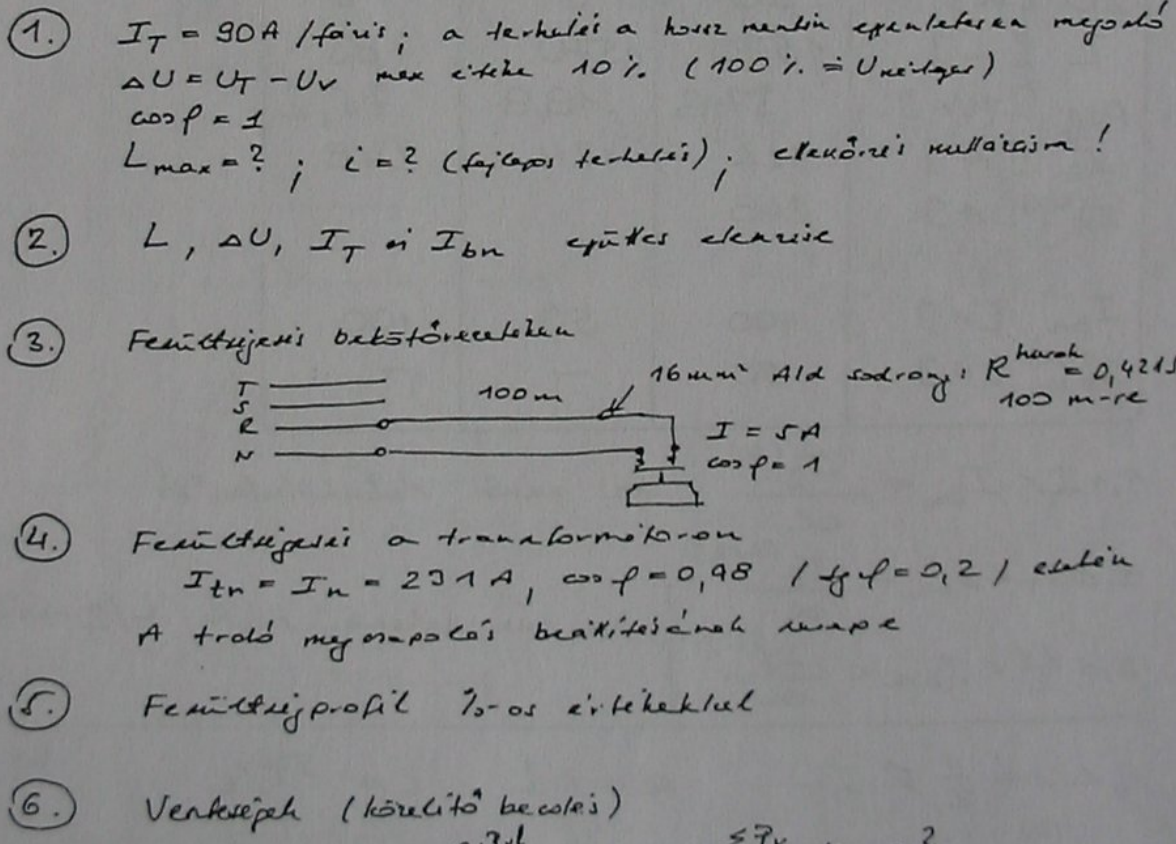 1. I_T = 90A /fázis; a terhelés a hossz mentén egyenletesen megoszló
ΔU = U_T - U_V max értéke 10 %. (100 % = U névleges)
cos φ = 1
L_max = ? ; i = ? (fajlagos terhelés); ellenőrzés nullázásra!
2. L, ΔU, I_T és I_bn együttes elemzése
3. Feszültségesés bekötővezetéken
T
S
R
N
100 m
16 mm² Ald sodrony: R hurok = 0,421
100 m-re
I = 5A
cos φ = 1
4. Feszültségesés a transformátoron
I_tn = I_n = 231 A, cos φ = 0,98 / tg φ = 0,2 / esetén
A trafó megcsapolás beállításának szerepe
5. Feszültségprofil %-os értékekkel
6. Veszteségek (közelítő becslés)